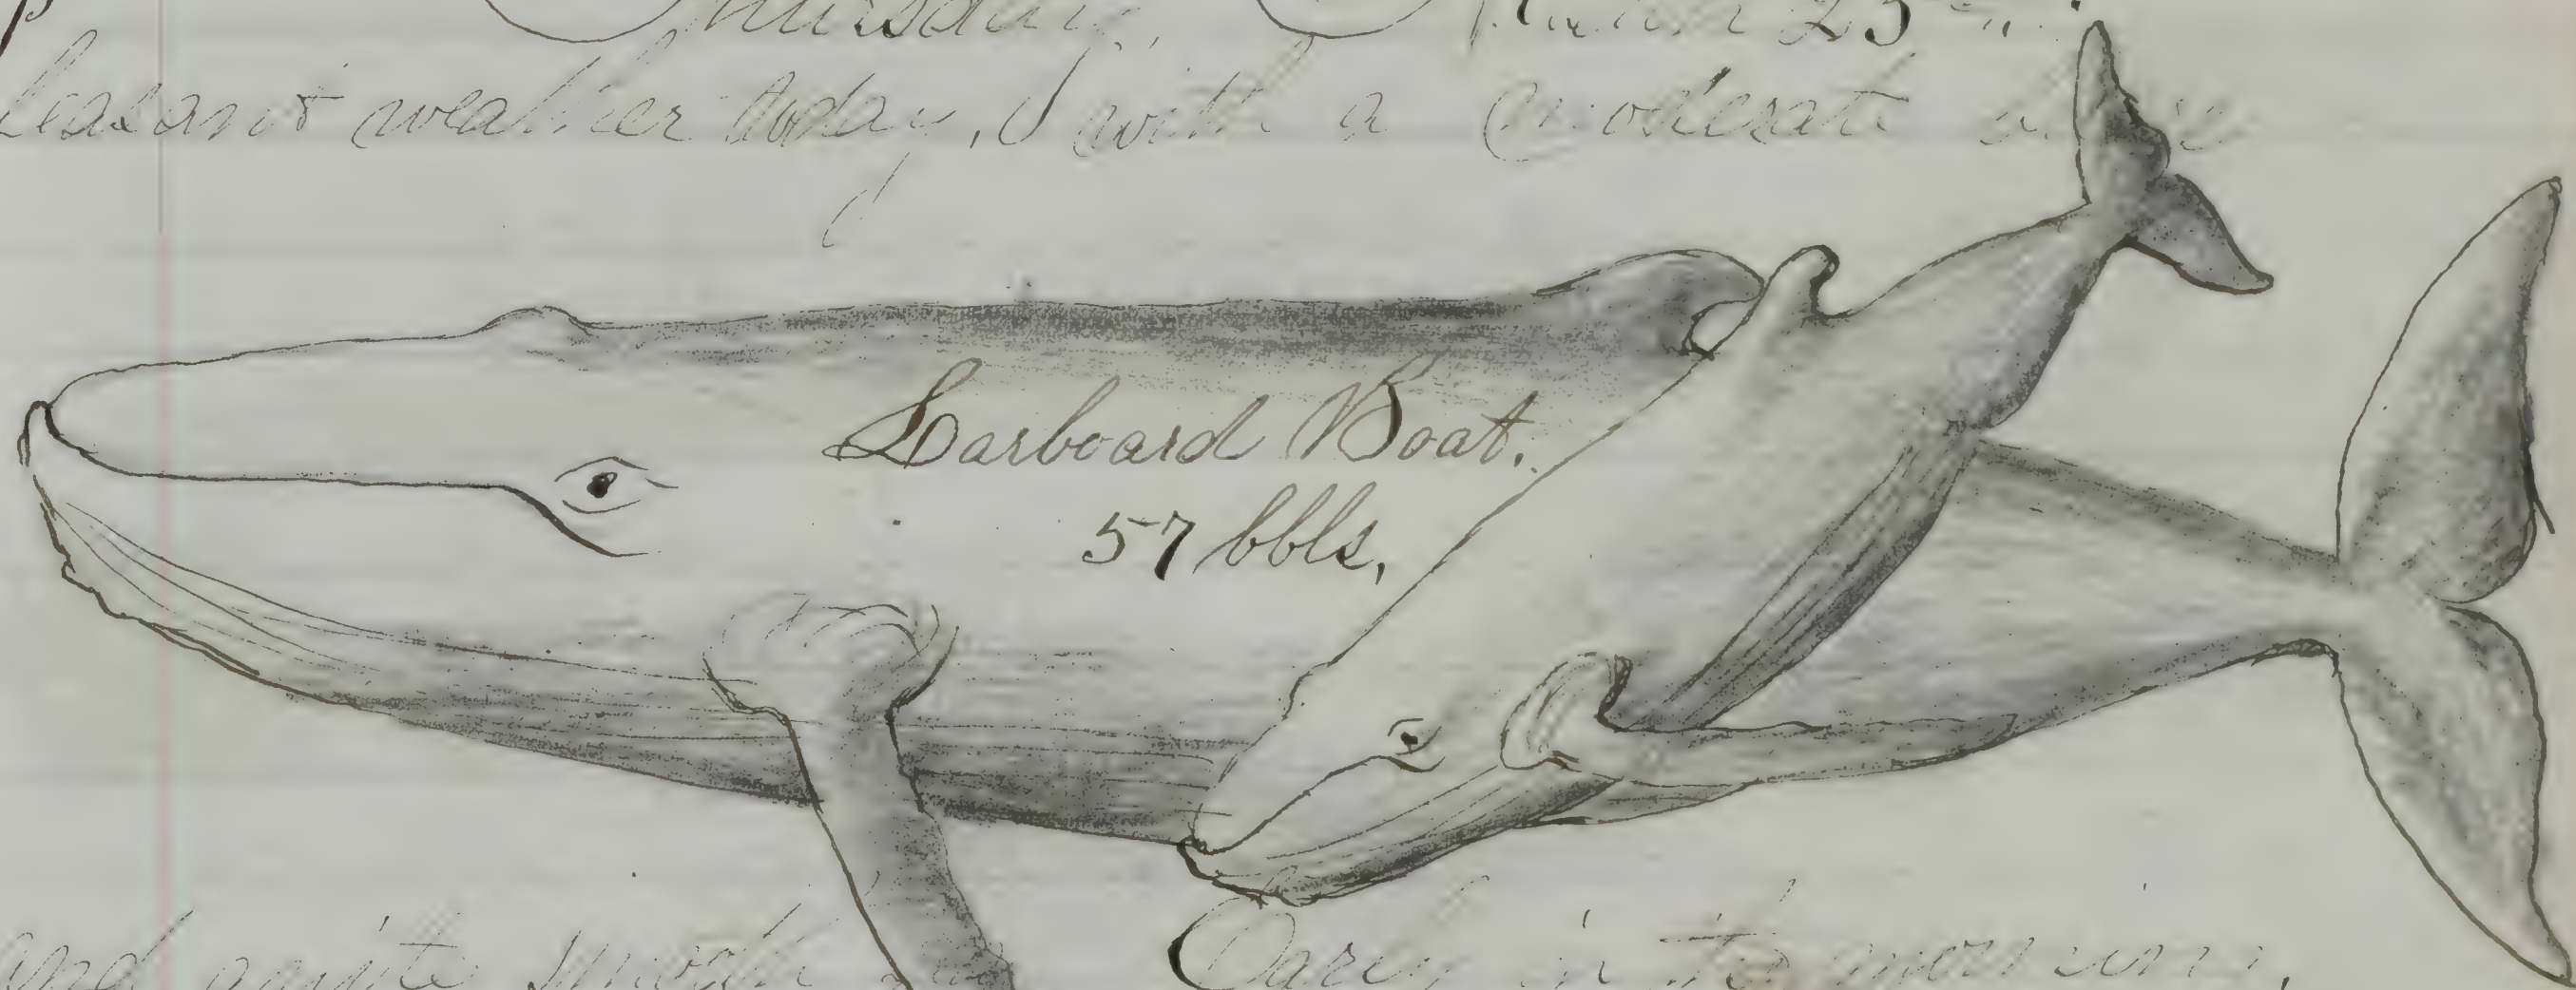 Thursday, March 25th
leasant weather today, with a moderate
Larboard Boat.
57 bbls,
and quite smooth sea Early in the morning,